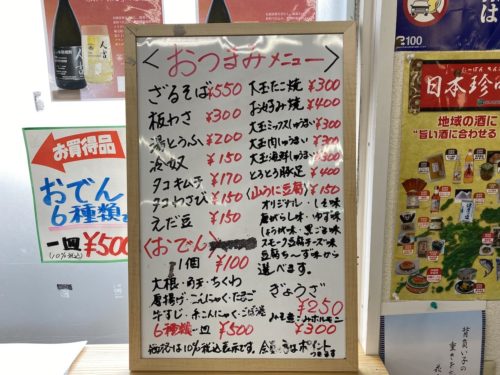 <おつまみメニュー>
ざるそば ¥550
板わさ ¥300
湯とうふ ¥200
冷奴 ¥150
タコキムチ ¥170
タコわさび ¥150
えだ豆 ¥150
<おでん>
1個 ¥100
大根・玉・ちくわ
厚揚げ・こんにゃく・たまご
牛すじ・糸こんにゃく・ごぼう
6種類一皿 ¥500
価格は10%税込表示です。
大玉たこ焼 ¥300
お好み焼 ¥400
大玉ミックスしゅうまい ¥300
大玉肉しゅうまい ¥300
大玉海鮮しゅうまい ¥300
とろとろ豚足 ¥400
<山うに豆腐> ¥150
オリジナル・しそ味
唐がらし味・ゆず味
しょうが味・黒ごま味
スモークチーズ味
豆腐ちーず味から
選べます。
ぎょうざ
¥250
ホルモン
¥300
ポイント
つきます
お買得品
おでん
6種類
一皿 ¥500
(10%税込)
100
は
日本珍
地域の酒に
"旨い酒に合わせ